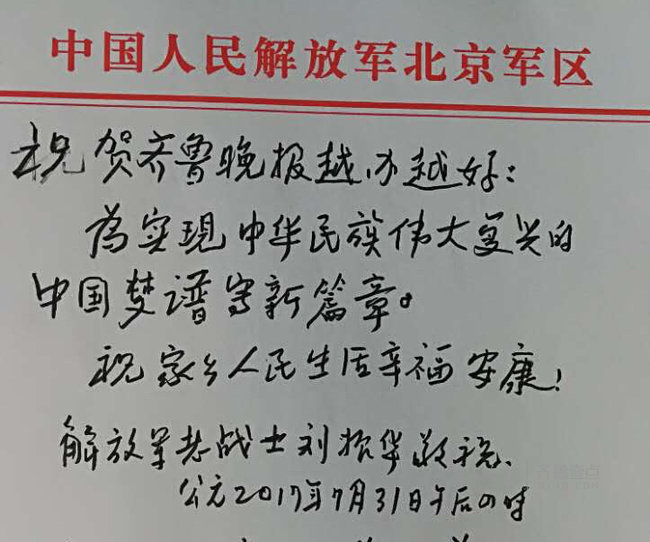 中国人民解放军北京军区
祝贺齐鲁晚报越办越好：
为实现中华民族伟大复兴的
中国梦谱写新篇章。
祝家乡人民生活幸福安康！
解放军老战士刘振华敬祝、
公元2017年7月31日午后四时